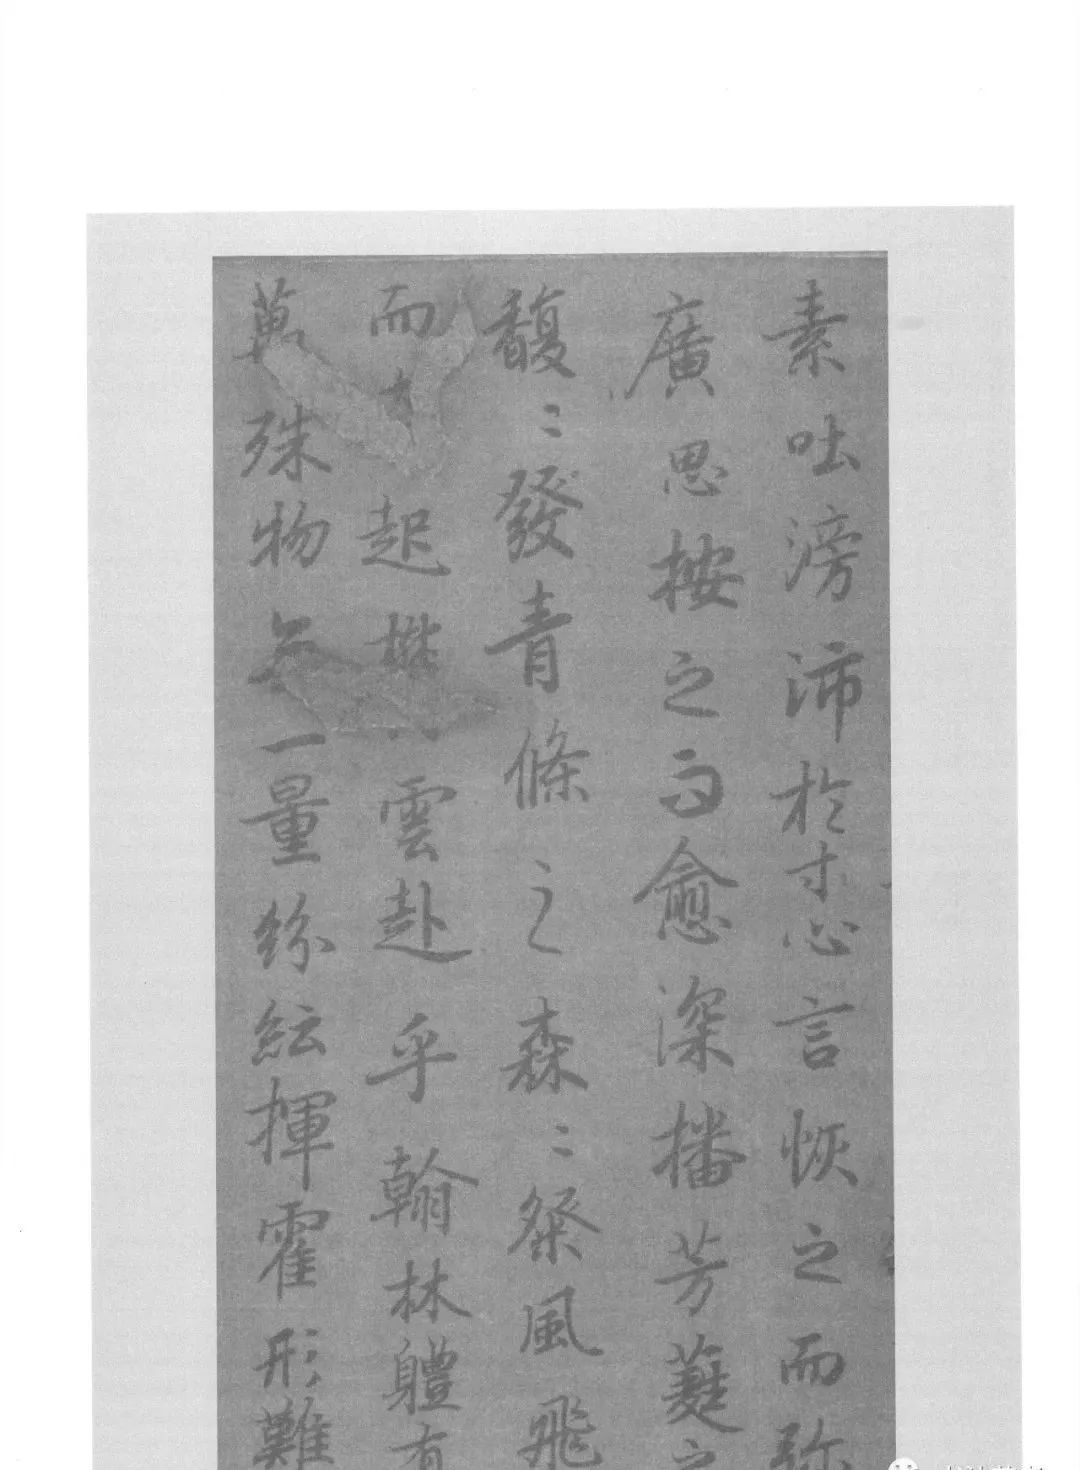 素吐滂沛於寸心言恢之而弥
廣思按之而愈深播芳蕤之
馥〻發青條之森〻粲風飛
而起欝雲赴乎翰林體有
萬殊物無一量紛紜揮霍形難